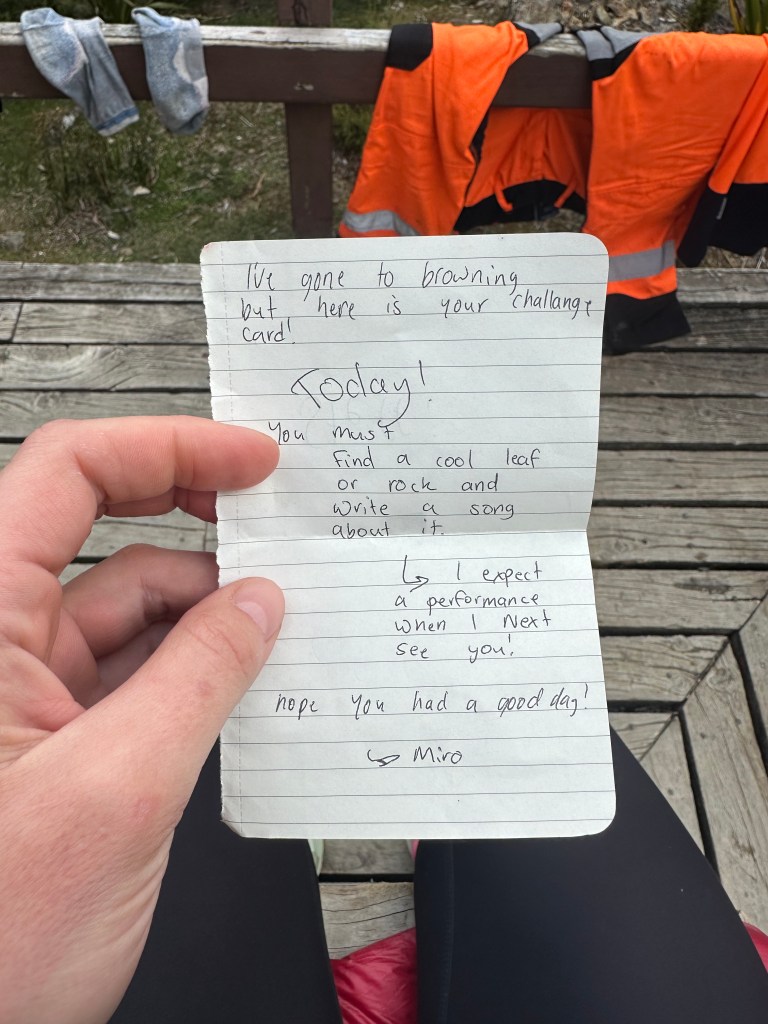 I've gone to browning
but here is your challange
card!
Today!
You must
Find a cool leaf
or rock and
write a song
about it.
↳ I expect
a performance
when I next
see you!
hope you had a good day!
↳ Miro